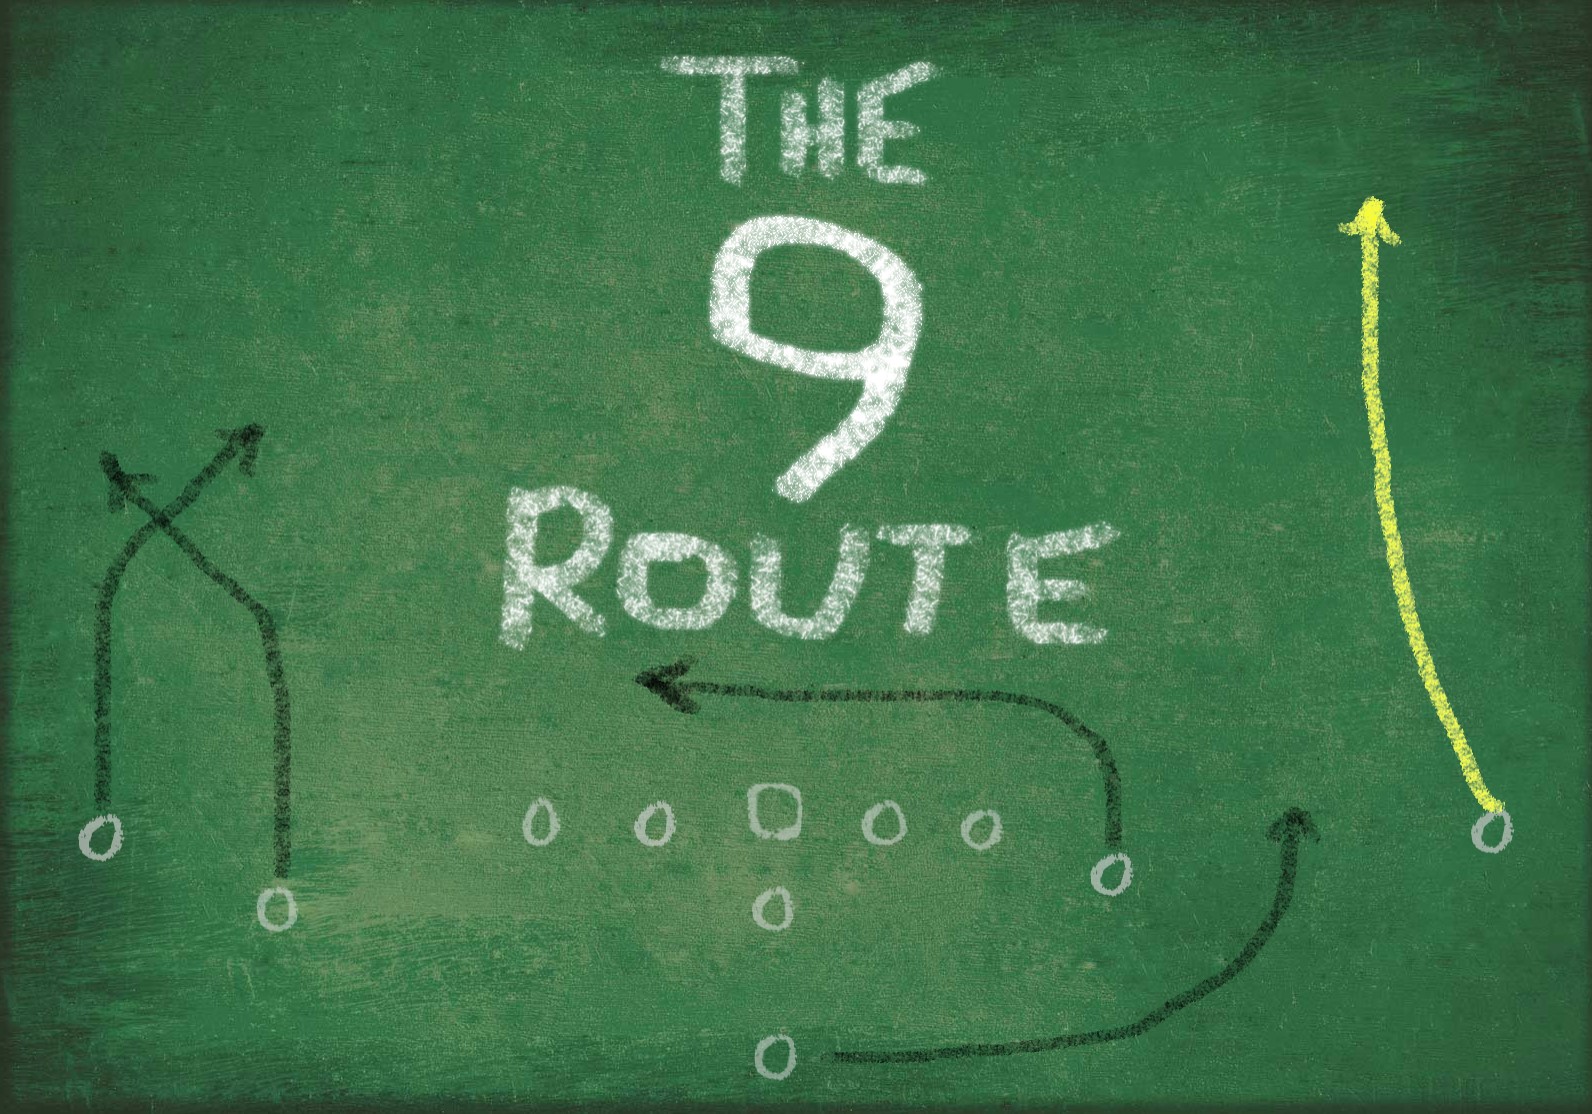 THE
9
ROUTE